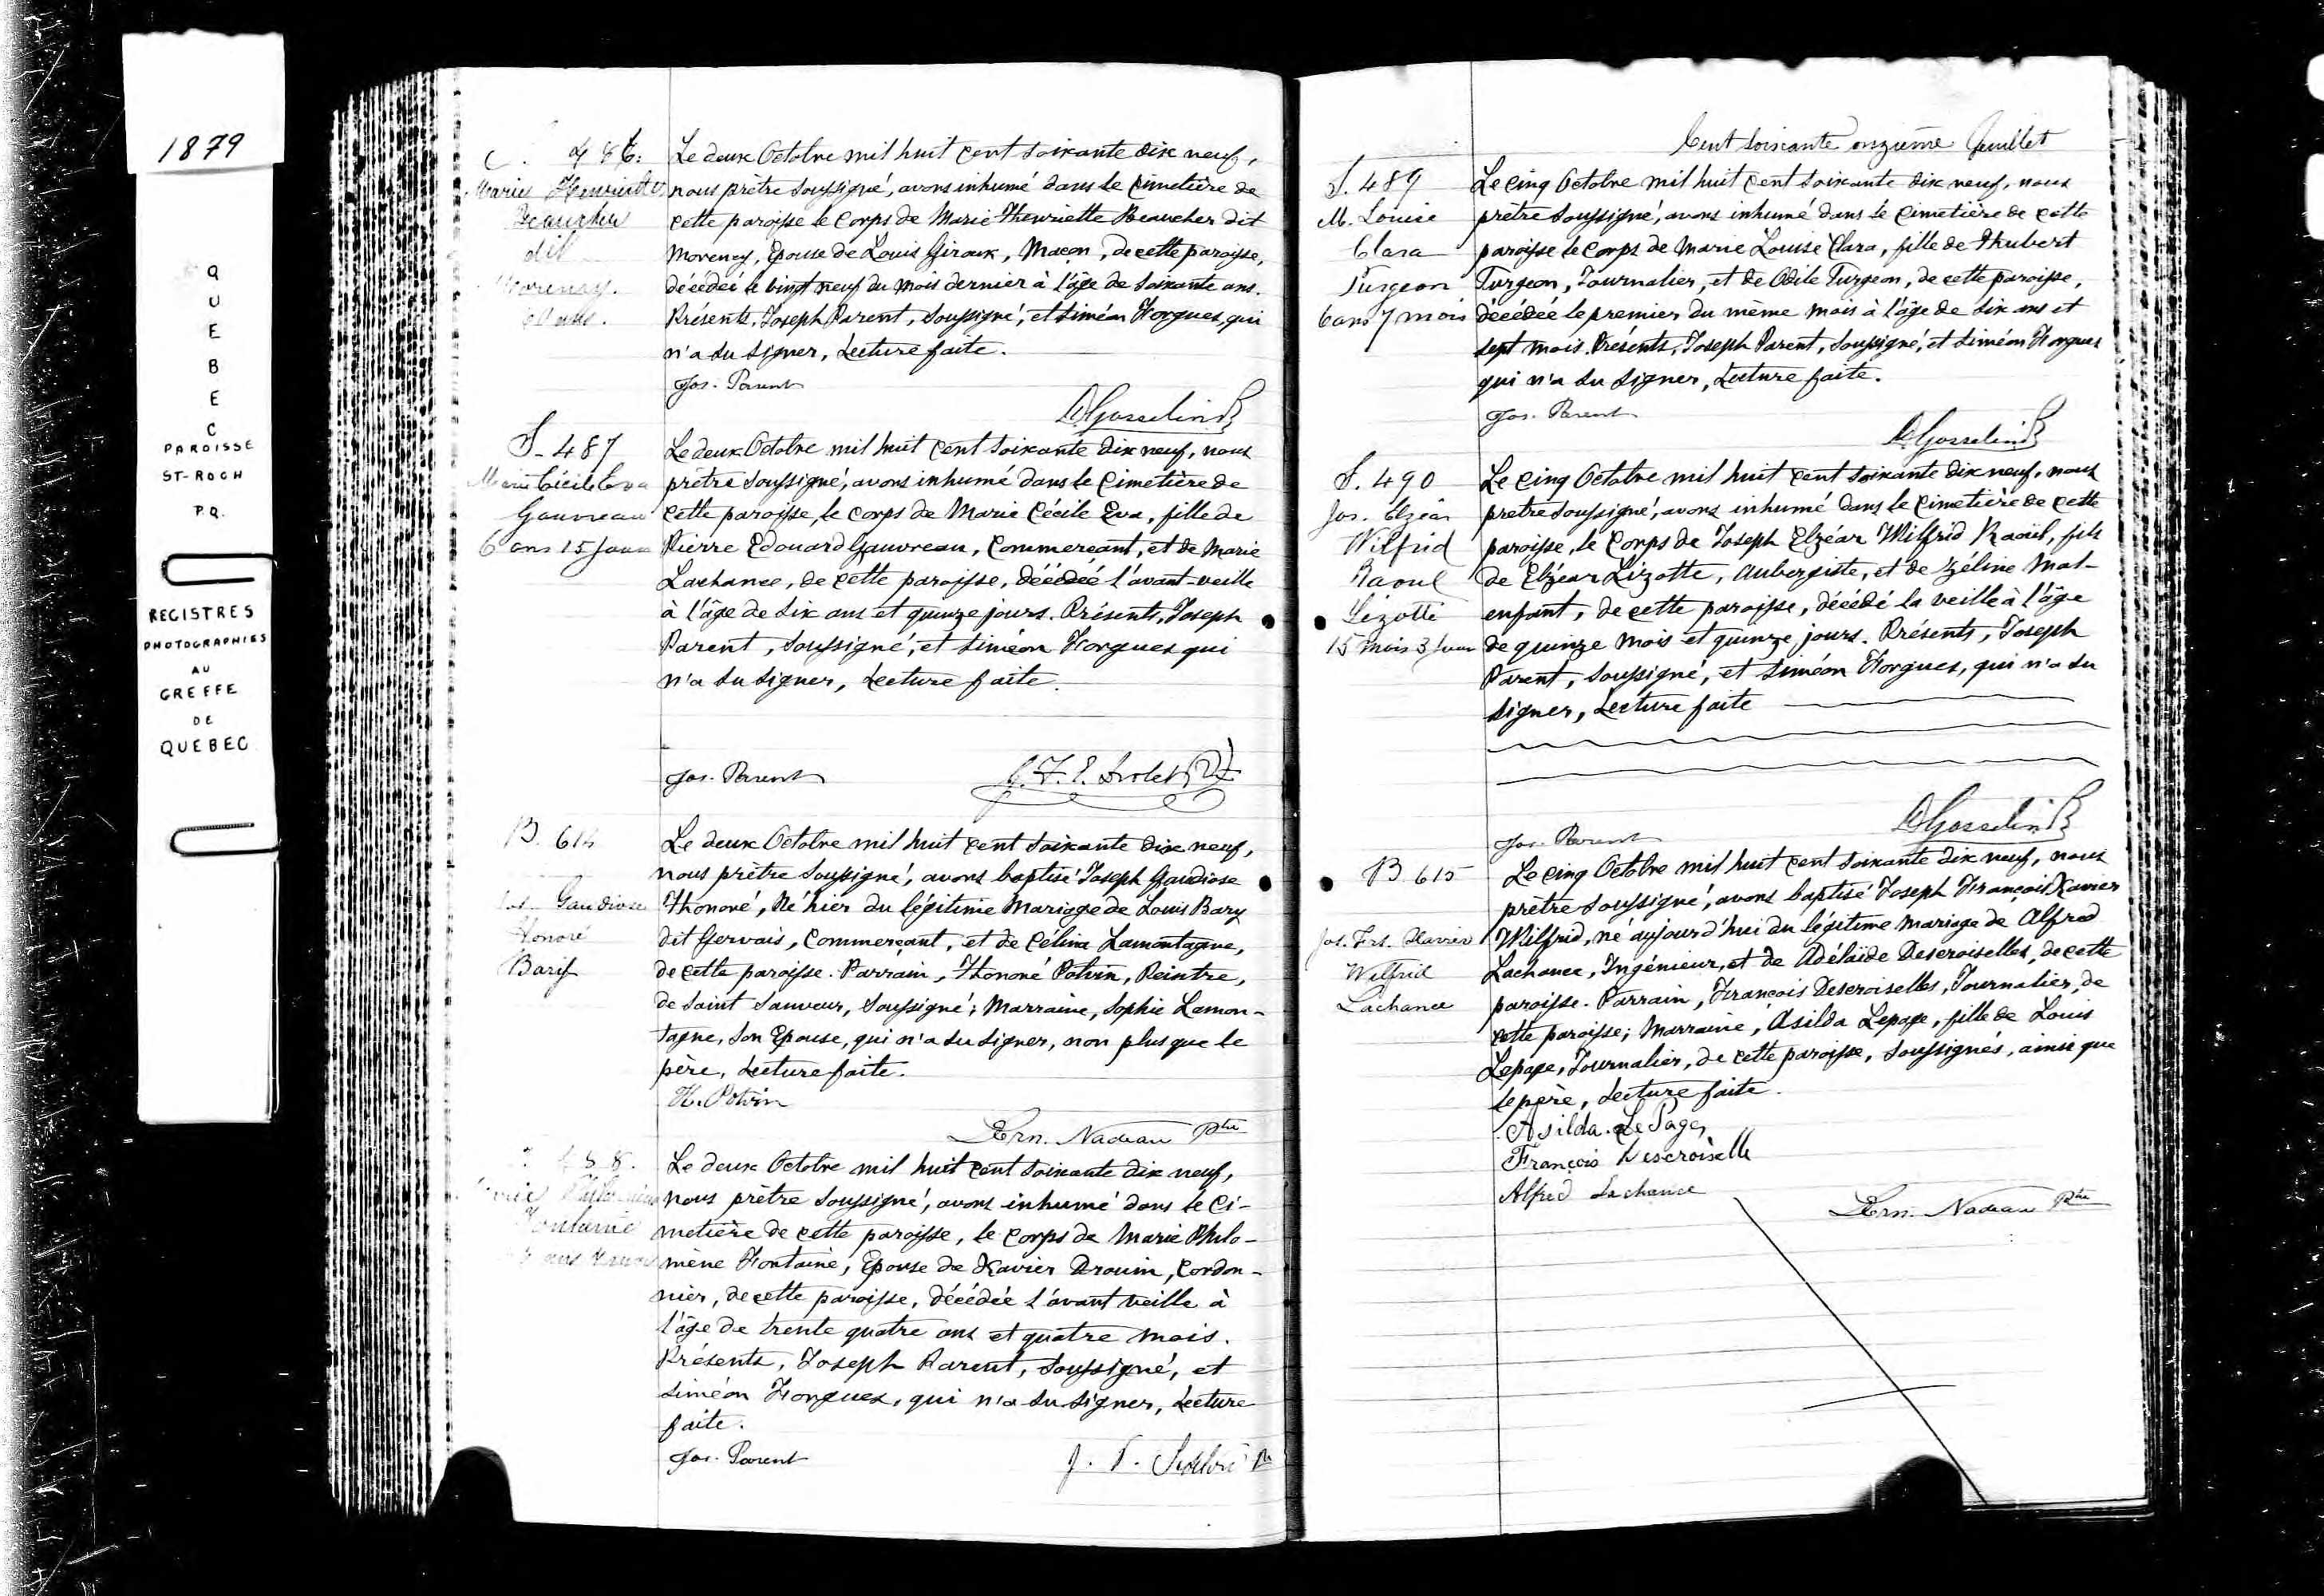 1879
Q
U
E
B
E
C
PAROISSE
ST-ROCH
P.Q.
REGISTRES
PHOTOGRAPHIES
AU
GREFFE
DE
QUEBEC
486.
Marie Henriette
Beaucher
dit
Morency.
60 ans.
Le deux Octobre mil huit cent soixante dix neuf,
nous prêtre soussigné, avons inhumé dans le Cimetière de
cette paroisse le corps de Marie Henriette Beaucher dit
Morency, Epouse de Louis Giroux, Maçon, de cette paroisse,
décédée le vingt neuf du mois dernier à l'âge de soixante ans.
Présents, Joseph Parent, soussigné, et Siméon Horgues, qui
n'a su signer, Lecture faite.
Jos. Parent
DGosselin
S. 487
Marie Cécile Eva
Gauvreau
6 ans 15 jours
Le deux Octobre mil huit cent soixante dix neuf, nous
prêtre soussigné, avons inhumé dans le Cimetière de
cette paroisse, le corps de Marie Cécile Eva, fille de
Pierre Edouard Gauvreau, Commerçant, et de Marie
Lachance, de cette paroisse, décédée l'avant-veille
à l'âge de six ans et quinze jours. Présents, Joseph
Parent, soussigné, et Siméon Horgues qui
n'a su signer, Lecture faite.
Jos. Parent
Drolet
B. 614
Jos. Gaudiose
Honoré
Barif
Le deux Octobre mil huit cent soixante dix neuf,
nous prêtre soussigné, avons baptisé Joseph Gaudiose
Honoré, Né hier du légitime Mariage de Louis Bary
dit Gervais, Commerçant, et de Célina Lamontagne,
de cette paroisse. Parrain, Honoré Potvin, Peintre,
de Saint Sauveur, soussigné; Marraine, Sophie Lamon-
tagne, son Epouse, qui n'a su signer, non plus que le
père, Lecture faite.
H. Potvin
Nadeau Ptre
488.
Marie Philomène
Fontaine
Le deux Octobre mil huit cent soixante dix neuf,
nous prêtre soussigné, avons inhumé dans le Ci-
metière de cette paroisse, le corps de Marie Philo-
mène Fontaine, Epouse de Xavier Drouin, Cordon-
nier, de cette paroisse, décédée l'avant veille à
l'âge de trente quatre ans et quatre mois.
Présents, Joseph Parent, soussigné, et
Siméon Horgues, qui n'a su signer, Lecture
faite.
Jos. Parent
Cent soixante onzième feuillet
S. 489
M. Louise
Clara
Turgeon
6 ans 7 mois
Le cinq Octobre mil huit cent soixante dix neuf, nous
prêtre soussigné, avons inhumé dans le Cimetière de cette
paroisse le corps de Marie Louise Clara, fille de Hubert
Turgeon, Journalier, et de Odile Turgeon, de cette paroisse,
décédée le premier du même mois à l'âge de six ans et
sept mois. Présents, Joseph Parent, soussigné, et Siméon Horgues
qui n'a su signer, Lecture faite.
Jos. Parent
DGosselin
S. 490
Jos. Elzéar
Wilfrid
Raoul
Lizotte
15 mois 3 jours
Le cinq Octobre mil huit cent soixante dix neuf, nous
prêtre soussigné, avons inhumé dans le Cimetière de cette
paroisse, le corps de Joseph Elzéar Wilfrid Raoul, fils
de Elzéar Lizotte, Aubergiste, et de Zéline Mal-
enfant, de cette paroisse, décédé la veille à l'âge
de quinze mois et quinze jours. Présents, Joseph
Parent, soussigné, et Siméon Horgues, qui n'a su
signer, Lecture faite
Jos. Parent
DGosselin
B. 615
Jos. Frs. Xavier
Wilfrid
Lachance
Le cinq Octobre mil huit cent soixante dix neuf, nous
prêtre soussigné, avons baptisé Joseph François Xavier
Wilfrid, né aujourd'hui du légitime mariage de Alfred
Lachance, Ingénieur, et de Adélaïde Descroiselles, de cette
paroisse. Parrain, François Descroiselles, Journalier, de
cette paroisse; Marraine, Asilda Lepage, fille de Louis
Lepage, Journalier, de cette paroisse, soussignés, ainsi que
le père, Lecture faite.
Asilda LePage
François Descroiselle
Alfred Lachance
Nadeau Ptre